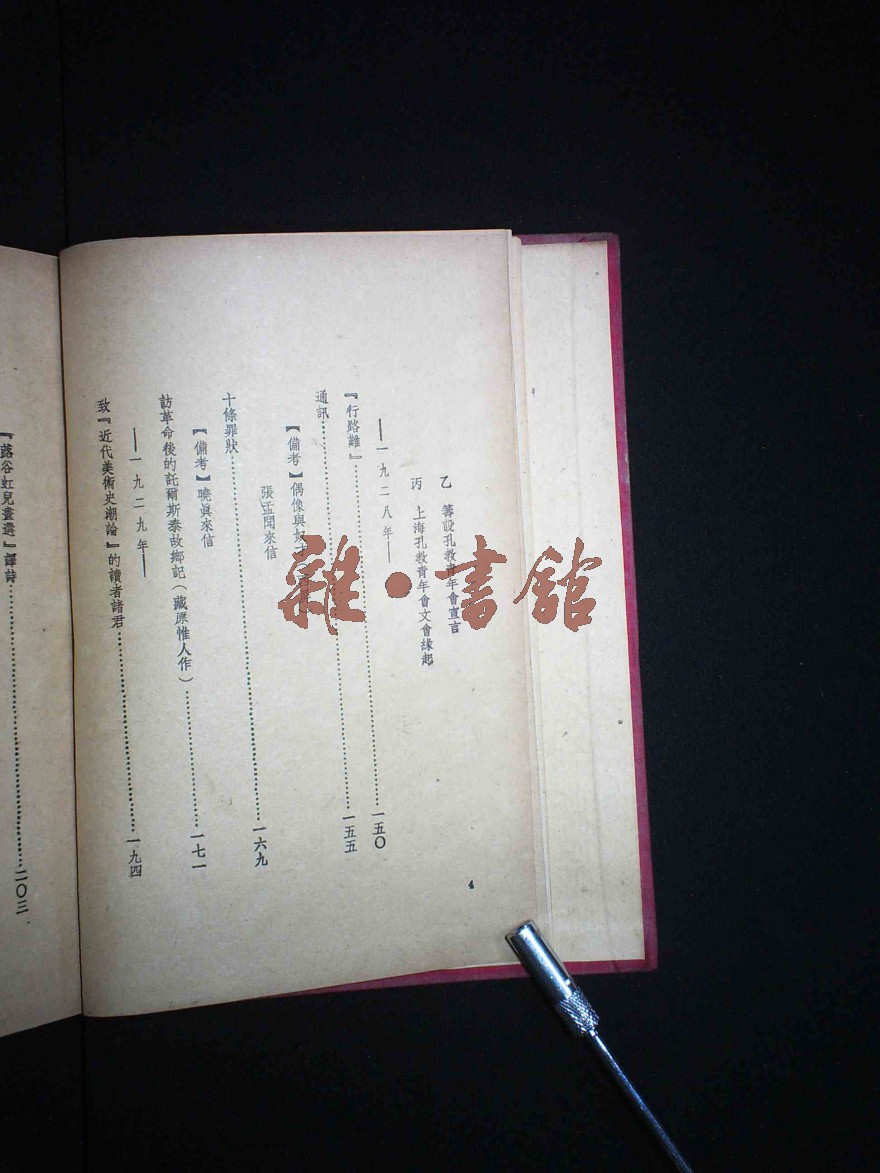 乙　籌設孔教青年會宣言
丙　上海孔教青年會文會緣起
——一九二八年——
『行路難』…………一五〇
通訊…………一五五
【備考】偶像與奴才
張孟聞來信
十條罪狀…………一六九
【備考】曉眞來信
訪革命後的託爾斯泰故鄉記（藏原惟人作）…………一七一
——一九二九年——
致『近代美術史潮論』的讀者諸君…………一九四
『蕗谷虹兒畫選』譯詩…………二〇三
雜·書館